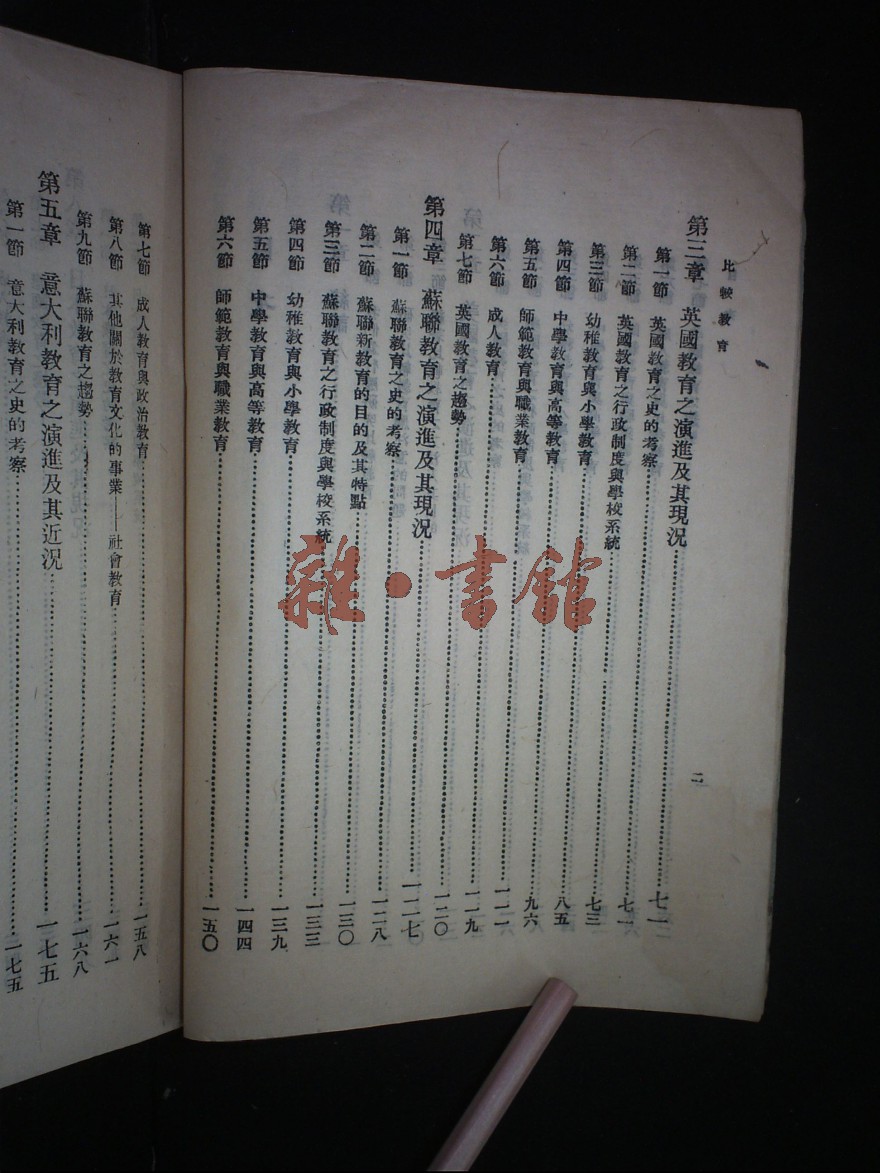 比較教育
二
第三章 英國教育之演進及其現況……七一
第一節 英國教育之史的考察……七一
第二節 英國教育之行政制度與學校系統……七三
第三節 幼稚教育與小學教育……八五
第四節 中學教育與高等教育……九六
第五節 師範教育與職業教育……一一一
第六節 成人教育……一一九
第七節 英國教育之趨勢……一二〇
第四章 蘇聯教育之演進及其現況……一二七
第一節 蘇聯教育之史的考察……一二八
第二節 蘇聯新教育的目的及其特點……一三〇
第三節 蘇聯教育之行政制度與學校系統……一三三
第四節 幼稚教育與小學教育……一三九
第五節 中學教育與高等教育……一四四
第六節 師範教育與職業教育……一五〇
第七節 成人教育與政治教育……一五八
第八節 其他關於教育文化的事業——社會教育……一六一
第九節 蘇聯教育之趨勢……一六八
第五章 意大利教育之演進及其近況……一七五
第一節 意大利教育之史的考察……一七五
雜·書館